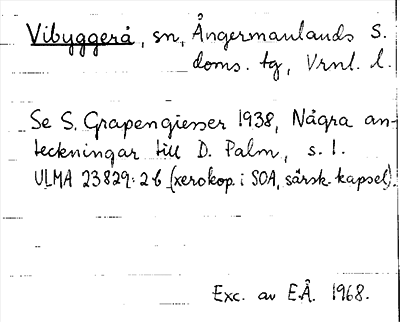 Vibyggerå, sn, Ångermanlands S.
doms. tg, Vrnl. l.
Se S. Grapengiesser 1938, Några an-
teckningar till D. Palm, s. 1.
ULMA 23829:26 (xerokop. i SOA, särsk. kapsel).
Exc. av E.Å. 1968.